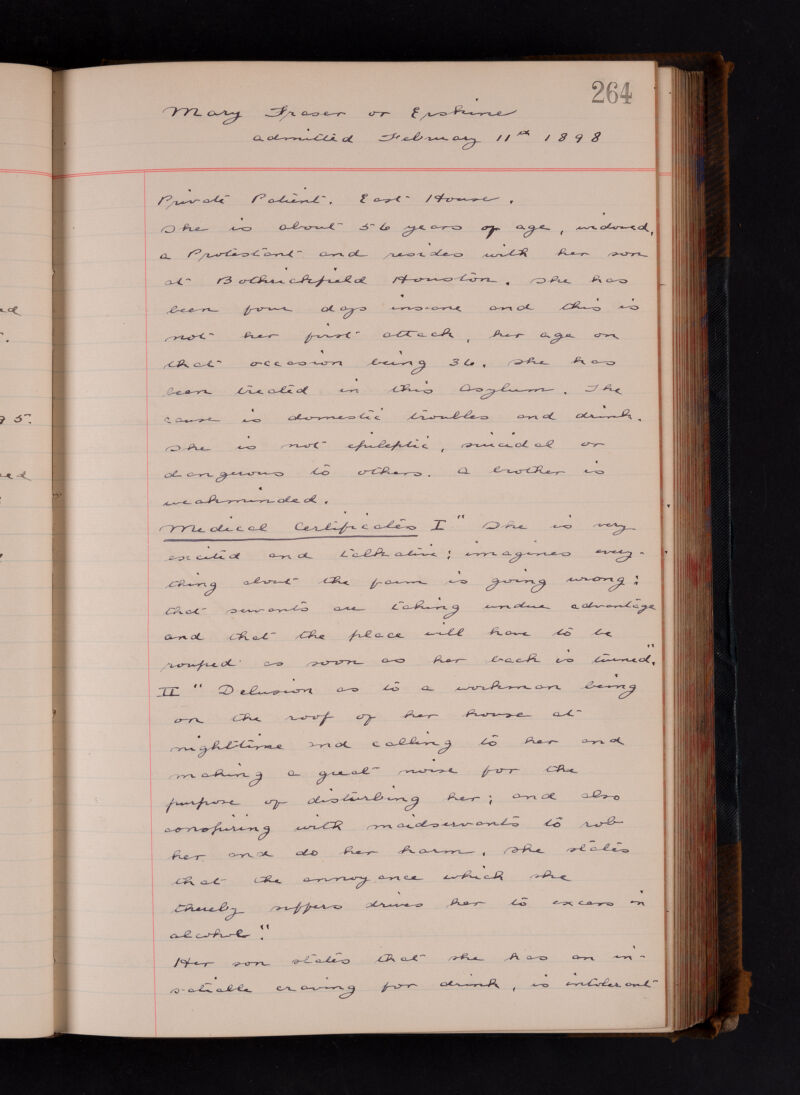 264
Mary Fraser or Erskine
admitted February 11th 1898
Private Patient. East House.
She is about 56 years of age, widowed,
a Protestant and resides with her son
at Botherickfield Houston. She has
been four days insane and this is
not her first attack, her age on
that occasion being 36. She has
been treated in this asylum. The
cause is domestic troubles and drink.
She is not epileptic, suicidal or
dangerous to others. A brother is
weakminded.
Medical Certificates I "She is very
excited and talkative; imagines every-
thing about the farm is going wrong;
that servants are taking undue advantage
and that the place will have to be
rouped as soon as her back is turned."
II "Delusion as to a workman being
on the roof of her house at
nighttime and calling to her and
making a great noise for the
purpose of disturbing her; and also
conspiring with maidservants to rob
her and do her harm. She states
that the annoyance which she
thereby suffers drives her to excess in
alcohol."
Her son states that she has an in-
satiable craving for drink, is intolerant
95.